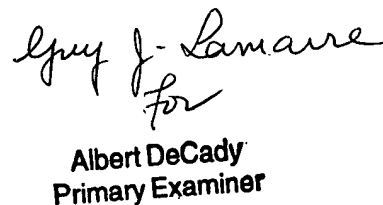 Guy J. Lamarre
For
Albert DeCady
Primary Examiner